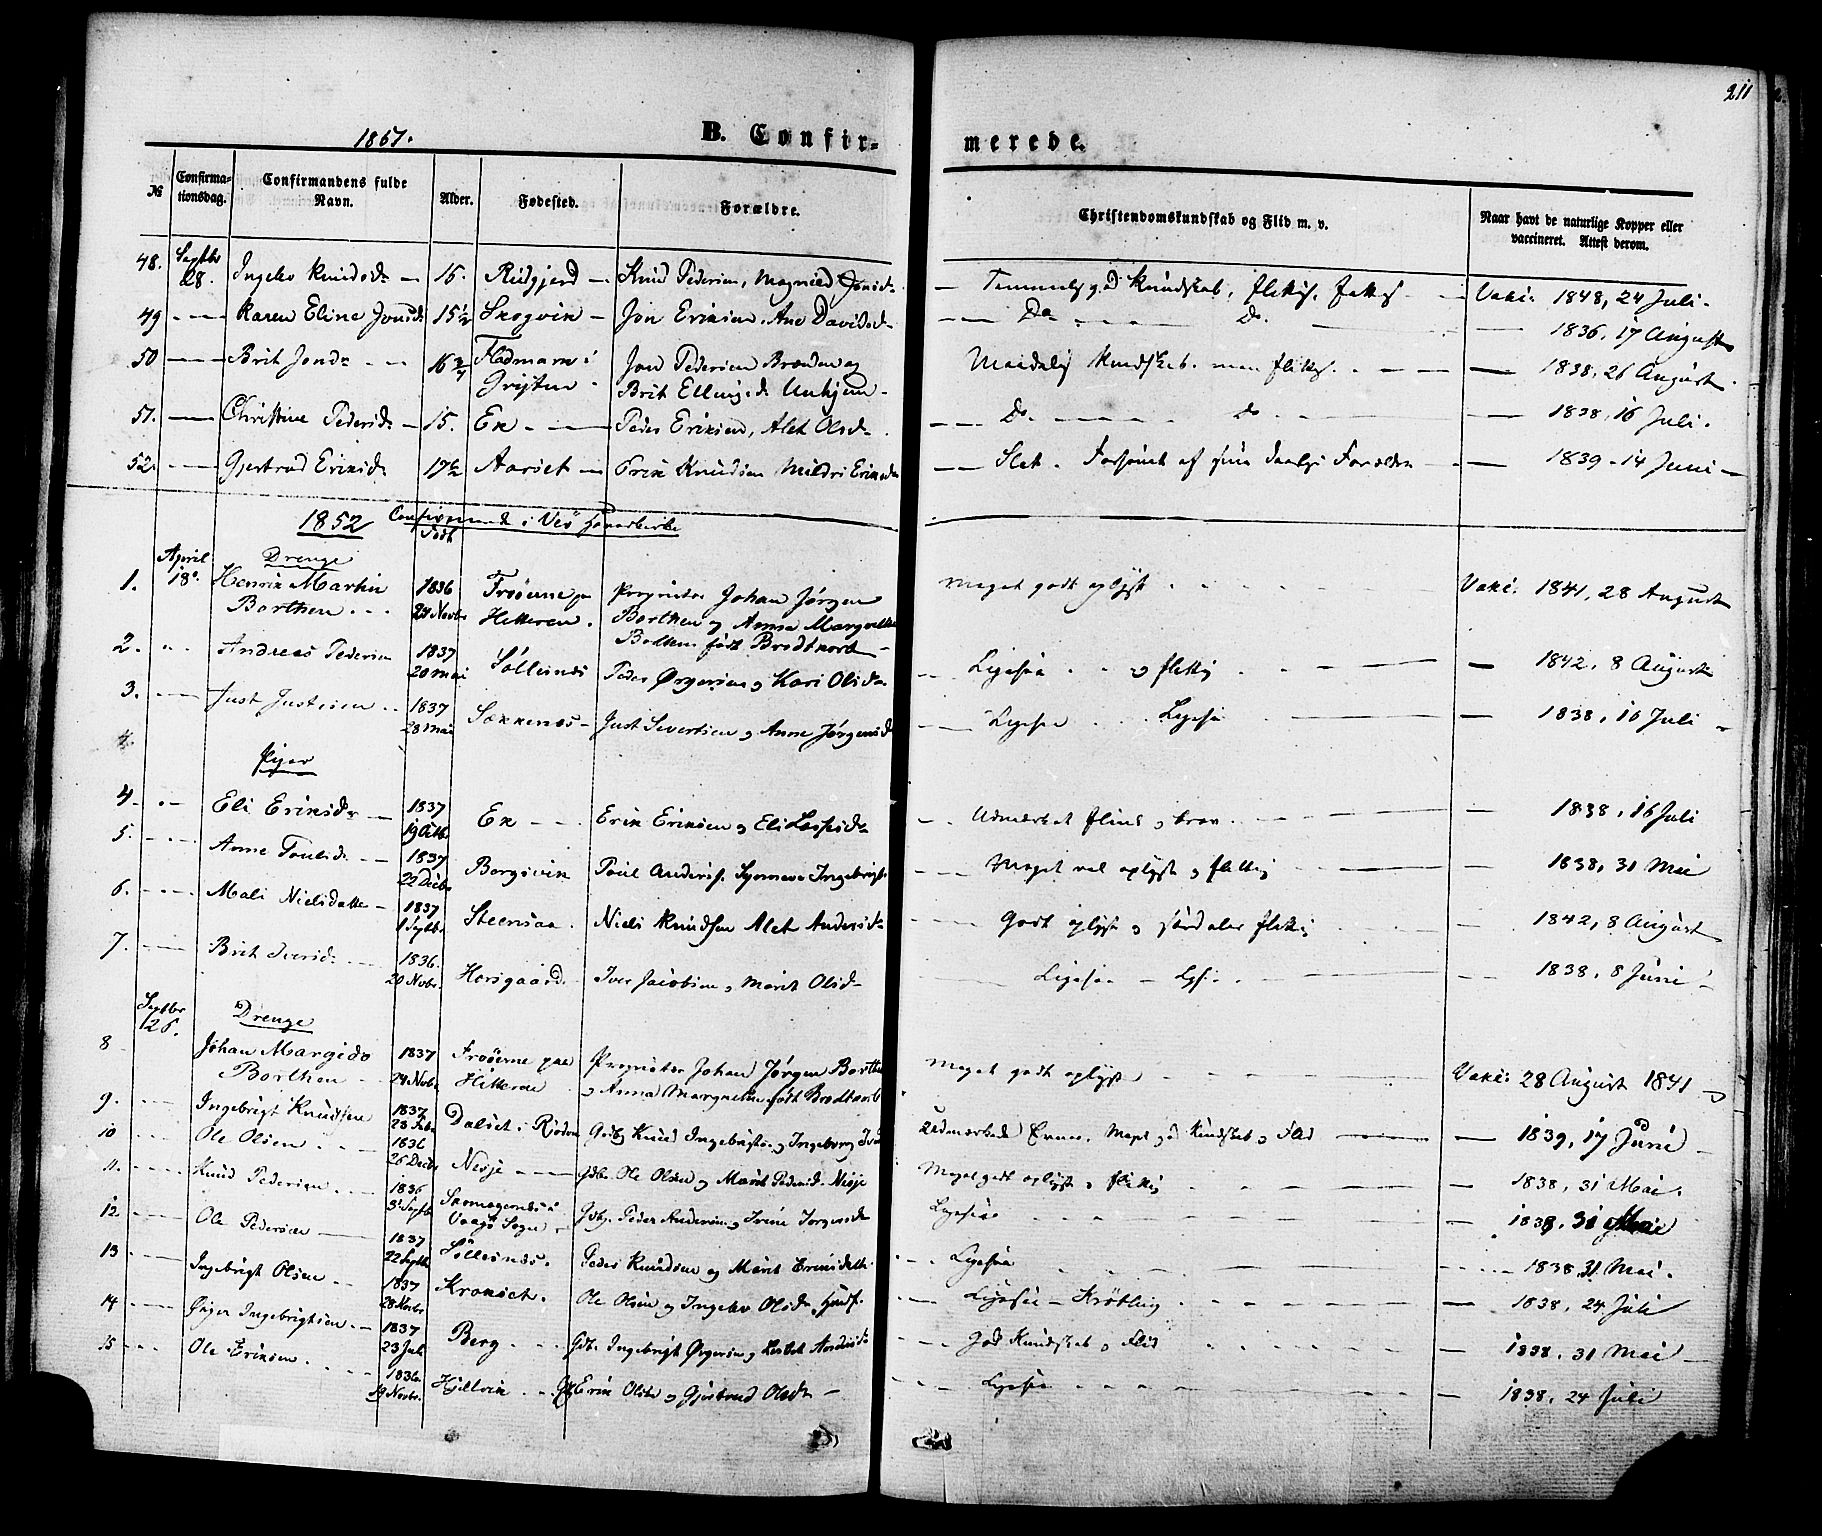 211
1851.
B. Confir-
merede.
№
Confirma-
tionsdag.
Confirmandens fulde
Navn.
Alder.
Fødested.
Forældre.
Christendomskundskab og Flid m. v.
Naar havt de naturlige Kopper eller
vaccineret. Attest derom.
48. Septbr 28. Ingebr Knudsd. — 15. Rødgjerd — Knud Pedersen, Magnild Jonsd. — Temmelig god Kundskab, flittig. — Vakc: 1848, 24 Juli.
49 — Karen Eline Jonsd. 15½ Skogvik — Jon Eriksen, Ane Davidsd. — Do. — Do. — 1836, 17 August
50 — Brit Jonsd. — 16¾ Fladmark i
Grytten. Jon Pedersen Brænden og
Brit Ellingsd. Unhjem — Maadelig Kundskab. men flittig. — 1838, 26 August.
51. — Christine Pedersd. — 15. Ek — Peder Eriksen, Alet Olsd. — Do. — Do. — 1838, 16 Juli.
52. — Gjertrud Eriksd. 17½ Aarset — Erik Knudsen Mildri Eriksd. — Slet. Forsømt af sine daarlige Forældre — 1839 - 14 Juni —
1852 Confirmerede i Veø Hovedkirke
Født
Drenge
1. April 18. Henrik Martin
Borthen 1836
Novbr Frøøerne pa
Hitteren. Proprietær Johan Jørgen
Borthen og Anna Margrethe
Borthen født Brodtkorb — Meget godt oplyst. Vakc: 1841, 28 August
2. Andreas Pedersen 1837
20 Mai Sølsnes Peder Ørgersen og Kari Olsd. — Ligesaa og flittig — 1842, 8 August
3. — Just Justsen 1837
28 Mai Sekkenes — Just Sivertsen og Anne Jørgensd. — Ligesaa Ligesaa — 1838, 16 Juli —
4.
Piger
4. Eli Eriksd. — 1837
19 Octb. Ek — Erik Eriksen og Eli Lassesd. — Udmærket flink og brav. — 1838, 16 Juli
5. Anne Poulsd. — 1837
22 Decbr Borgsvik Poul Anders. Synneve Ingebrigts — Meget vel oplyst og flittig — 1838, 31 Mai
6. Mali Nielsdatter — 1837
1 Septbr Steensaa. Niels Knudsen Alet Andersd. — Godt oplyst og særdeles flittig — 1842, 8 August
7. Brit Iversd. 1836.
20 Novbr. Horsgaard. Iver Jacobsen, Marit Olsd. — Ligesaa — 1838, 8 Juni —
Septbr
26.
Drenge
8 Johan Margido
Borthen 1837
24 Novbr Frøöerne paa
Hitteren Proprietær Johan Jørgen Borthen
og Anna Margrethe født Brodtkorb Meget godt oplyst — Vakc: 28 August 1841
9. Ingebrigt Knudsen 1837
28 Febr Dalset i Rødven Gdbr Knud Ingebrigtsen og Ingeborg Udmærkede Evner, Meget god Kundskab og Flid — 1839, 17 Juni
10 Ole Olsen 1836
26 Decbr Nesje — Gdbr. Ole Olsen og Marit Pedersd. Nesje Meget godt oplyst og flittig — 1838, 31 Mai.
11. Knud Pedersen 1836
Septb i
Vaagø Sogn Gdbr. Peder Andersen og Jørgensd. Ligesaa — 1838, 31 Mai
12. Ole Pedersen — 1837
22 Septb Sølsnes. Peder Knudsen og Marit Eriksdatter — Ligesaa — 1838 31 Mai.
13 Ingebrigt Olsen 1837
28 Novbr Kronset. Ole Olsen og Ingebr Olsd. — Ligesaa — Krøbling — 1838, 24 Juli
14 Ørger Ingebrigtsen — 1837
23 Juli Berg — Gdbr. Ingebrigt Ørgersen og — God Kundskab og Flid — 1838, 31 Mai —
15 Ole Eriksen 1836
19 Novbr. Hjelvik — Erik Olsen og Gjertrud Olsd. — Ligesaa — 1838, 24 Juli